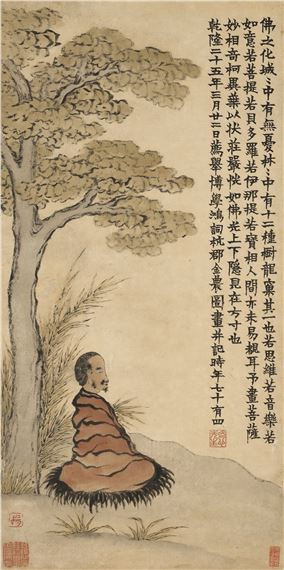 佛之化城〻中有無憂林〻中有十二種樹龍窠其一也若思維若音樂若
如意若菩提若貝多羅若伊那提若寶相人間亦未易覩耳予畫菩薩
妙相奇柯異葉以狀莊嚴恍如佛光上下隱見在方寸也
乾隆二十五年三月廿二日薦舉博學鴻詞杭郡金農圖畫并記時年七十有四